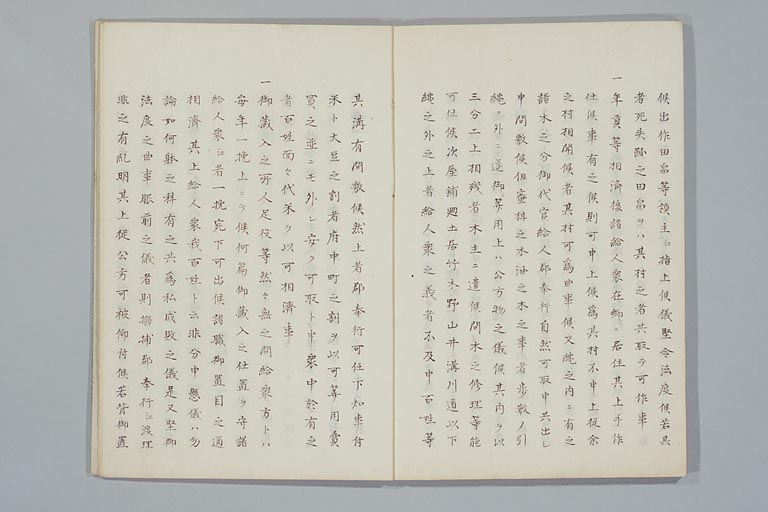 候出作田畠等領主江指上候儀堅令法度候若其
者死失跡之田畠ヲハ其村之者共取ラ可作事
一年貢等相濟後諸給人衆在郷ニ居住其上手作
仕候事有之候則可申上候為其村不申上従余
之村相聞候者其村可為曲事候又縄之内ニ有之
諸木之分御代官給人郡奉行自然可取申共出し
申間敷候但蜜柑之木油之木之事者歩数ノ引
縄ノ外ニ迄御算用上ハ公方物之儀候其内ヲ以
三分二上相残者木主ニ遣候間木之修理等能
可仕候次屋鋪廻土居竹木野山井溝川通以下
縄之外之上者給人衆之義者不及申百姓等
其溝有間敷候然上者郡奉行可任下知事付
米ト大豆之割者府中町之割ヲ以可算用賣
買之並ニモ外シ安ク可取ト申衆中於有之
者百姓面々代米ヲ以可相濟事
一御蔵入之所人足役等然々無之間給衆方トハ
毎年一挽上ニラ候何篇御蔵入之仕置ヲ守諸
給人衆江者一挽宛下可出候諸職御置目之通
相濟其上給人衆我百姓ト云非分申懸儀ハ勿
論如何躰之科有之共為私成敗之儀是又堅御
法度之曲事眼前之儀者則搦捕郡奉行江渡理
非之有乱明其上従公方可被仰付候若背御置